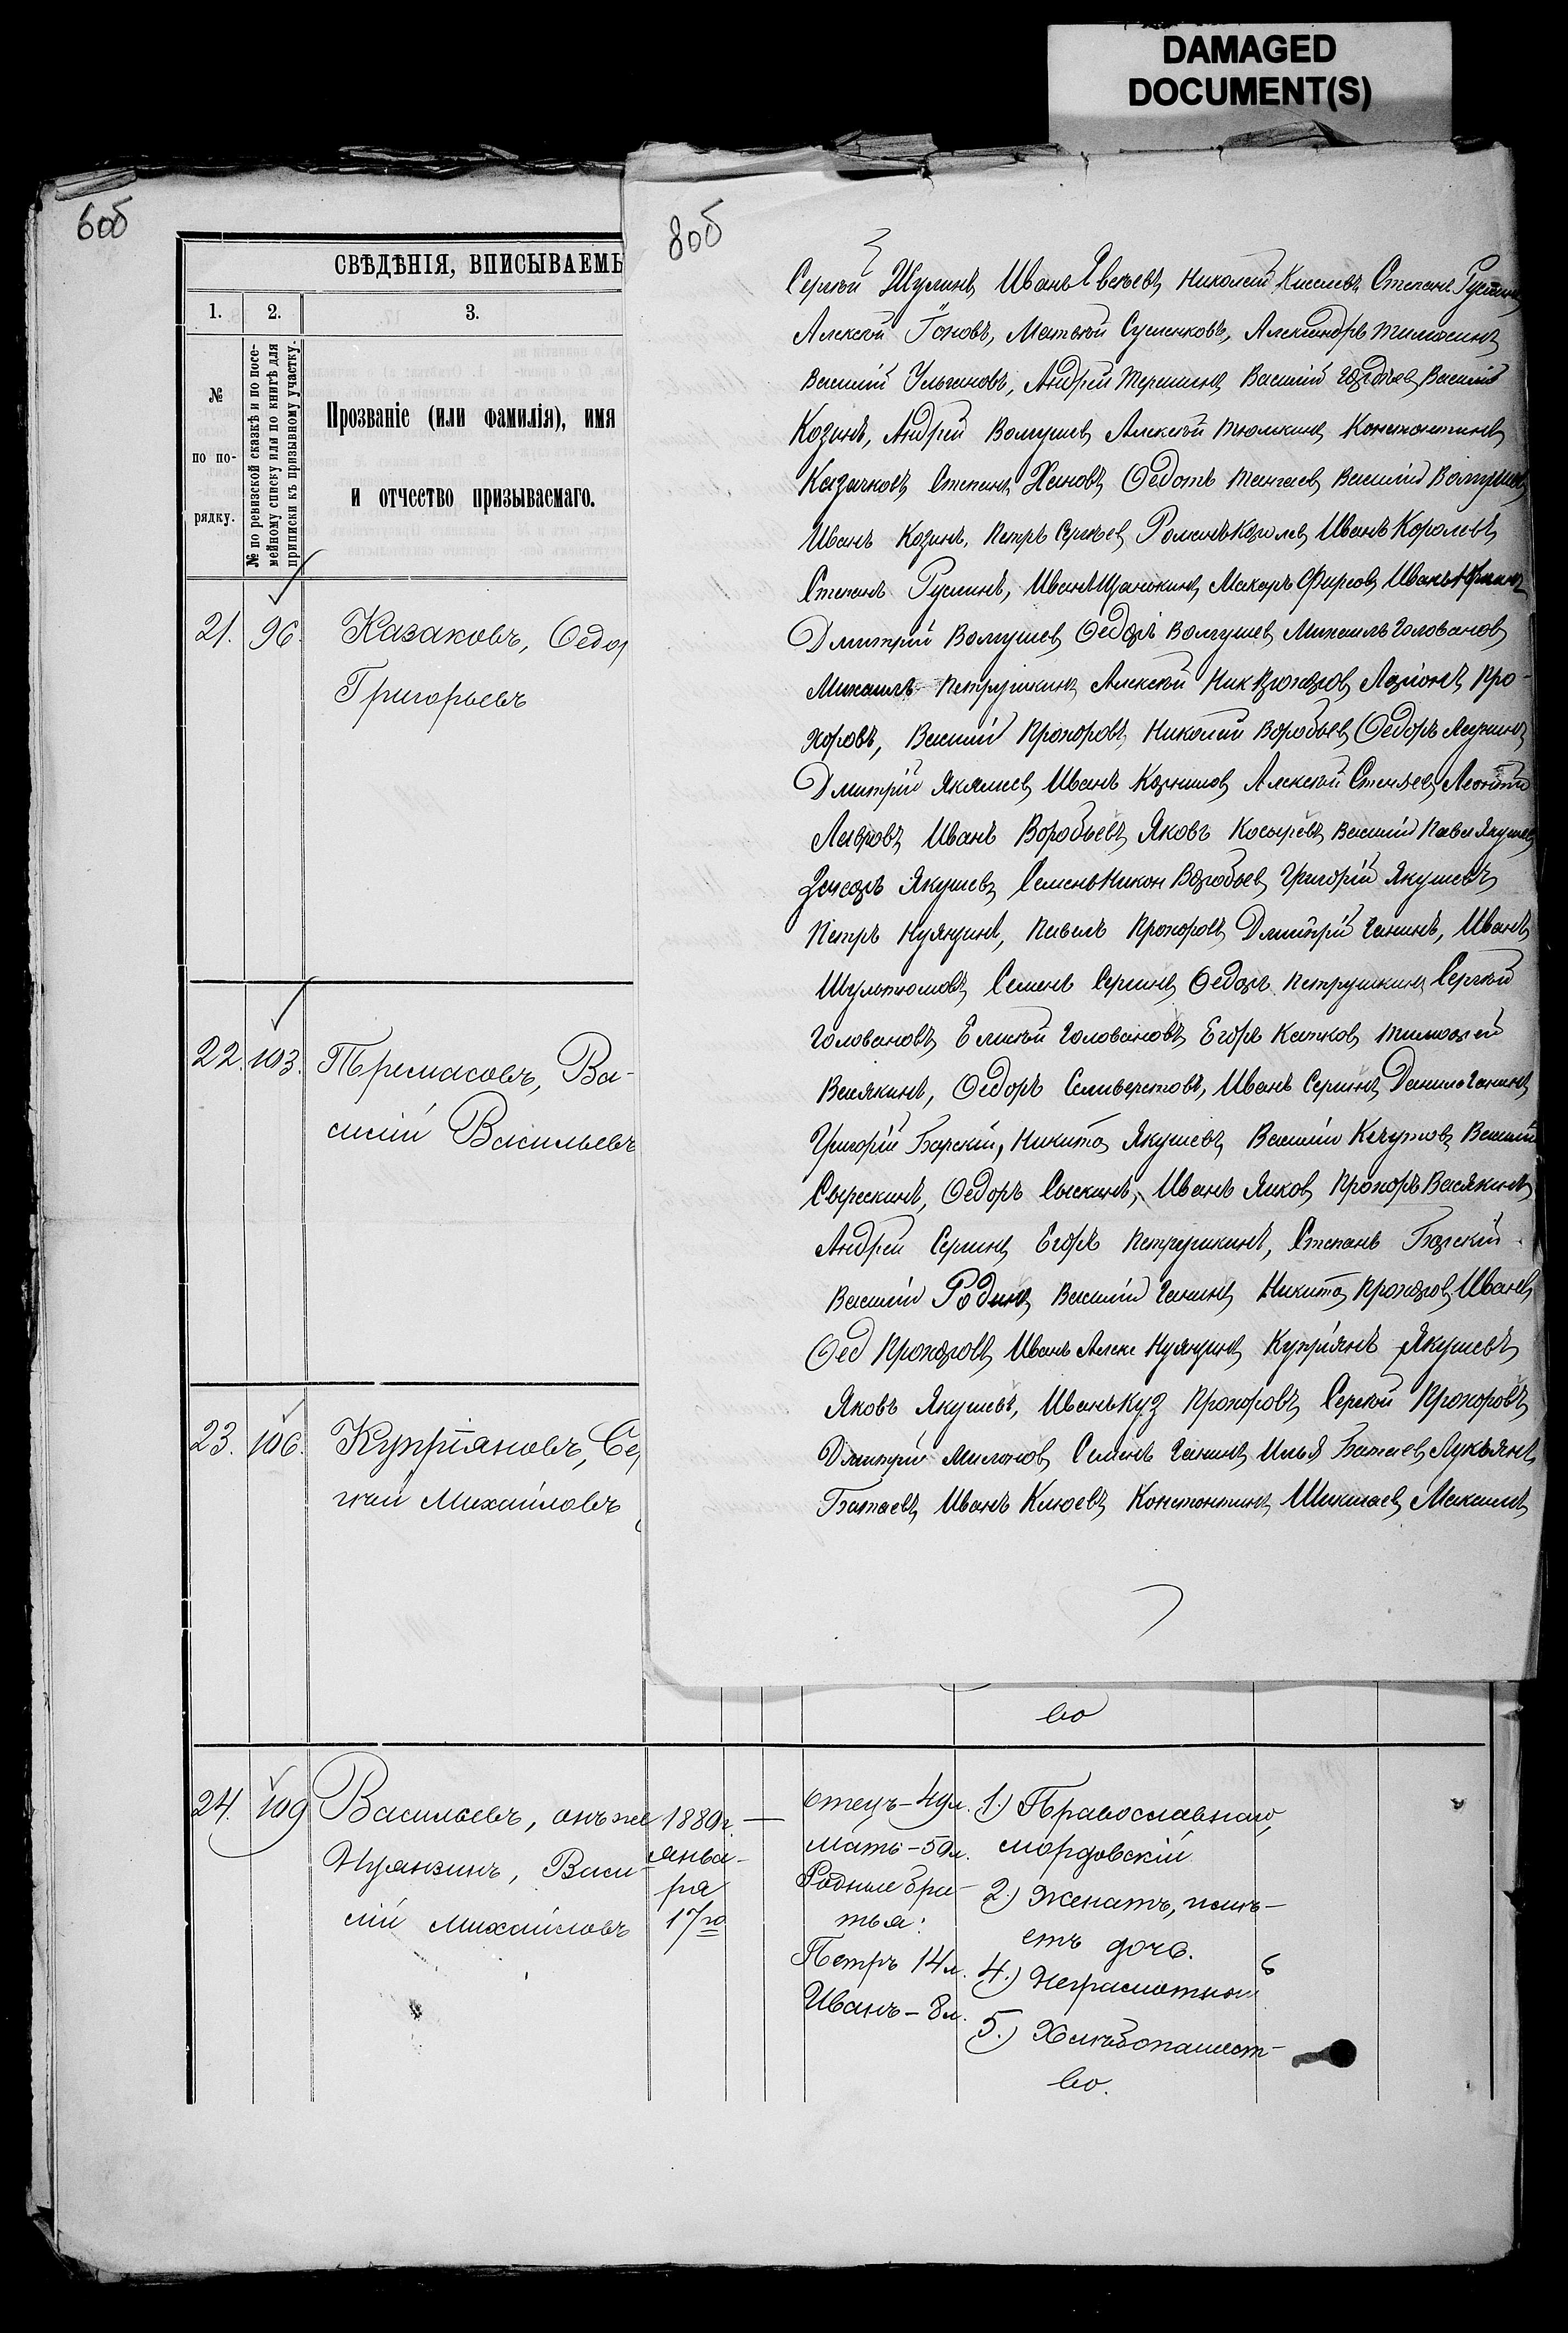 DAMAGED
DOCUMENT(S)
6об
СВѢДѢНІЯ, ВПИСЫВАЕМЫ
1. 2. 3.
№ по по-рядку.
№ по ревизской сказкѣ и по посе-
мейному списку или по книгѣ для
приписки къ призывному участку.
Прозваніе (или фамилія), имя
и отчество призываемаго.
21. 96. Казаковъ, Ѳедор
Григорьевъ
22. 103. Пѣремасовъ, Ва-
силій Васильевъ
23. 106. Купріяновъ, Се
гѣй Михайловъ
во
24. 109 Васильевъ, онъ же
Нуянзинъ, Васи-
лій Михайловъ
1880 г.
янва-
ря
17го
—
Отецъ – 49 л.
Мать – 50 л.
Родные бра-
тья:
Петръ 14 л.
Иванъ – 8 л.
1.) Православнаго,
мордовскій
2.) Женатъ, имѣ-
етъ дочь.
4.) Неграмотный
5.) Хлѣбопашест-
во.
8об
Сергѣй Шулинъ, Иванъ Николай Киселевъ Степанъ
Алексѣй Матвѣй Сушенковъ, Александръ Тимошинъ
Василій Ульяновъ, Андрей Терешинъ, Василій Василій
Козинъ, Андрей Волгушев, Алексѣй Тюмкинъ, Константинъ
Казачковъ Степанъ Хановъ, Ѳедотъ Тангаев, Василій Волгушев
Иванъ Козинъ, Петръ Сергѣев, Романъ Иванъ Королевъ,
Степанъ Русинъ, Иванъ Макаръ Фирсов, Иванъ
Дмитрій Волгушев, Ѳедоръ Волгушев, Михаилъ Голованов,
Михаилъ Петрушкинъ, Алексѣй Ник Прохоров, Ларіонъ Про-
хоровъ, Василій Прохоровъ, Николай Воробьев, Ѳедоръ
Дмитрій Иванъ Корнилов, Алексѣй Леонтій
Лавровъ, Иванъ Воробьевъ, Яковъ Косыревъ, Василій Павел Якушев
Захаръ Якушевъ, Семенъ Никон Воробьев, Григорій Якушевъ,
Петръ Нуянзинъ, Павелъ Прохоровъ, Дмитрій Ганинъ, Иванъ
Семенъ Сергинъ, Ѳедоръ Петрушкинъ, Сергѣй
Головановъ, Елисѣй Головановъ, Егоръ Катков, Тимофей
Васякинъ, Ѳедоръ Селиверстовъ, Иванъ Сергинъ, Данила Ганинъ,
Григорій Барскій, Никита Якушевъ, Василій Василій
Сырескинъ, Ѳедоръ Сыскинъ, Иванъ Яшков, Прохоръ Васякинъ,
Андрей Сергинъ, Егоръ Петрушкинъ, Степанъ Барскій
Василій Родинъ, Василій Ганинъ, Никита Прохоров, Иванъ
Ѳед Прохоровъ, Иванъ Алекс Нуянзинъ, Купріянъ Якушевъ,
Яковъ Якушевъ, Иванъ Куз Прохоровъ, Сергѣй Прохоровъ,
Дмитрій Миланов, Семенъ Ганинъ, Илья Батаев, Лукьянъ
Батаевъ, Иванъ Клюевъ, Константинъ Шикшаев, Максимъ